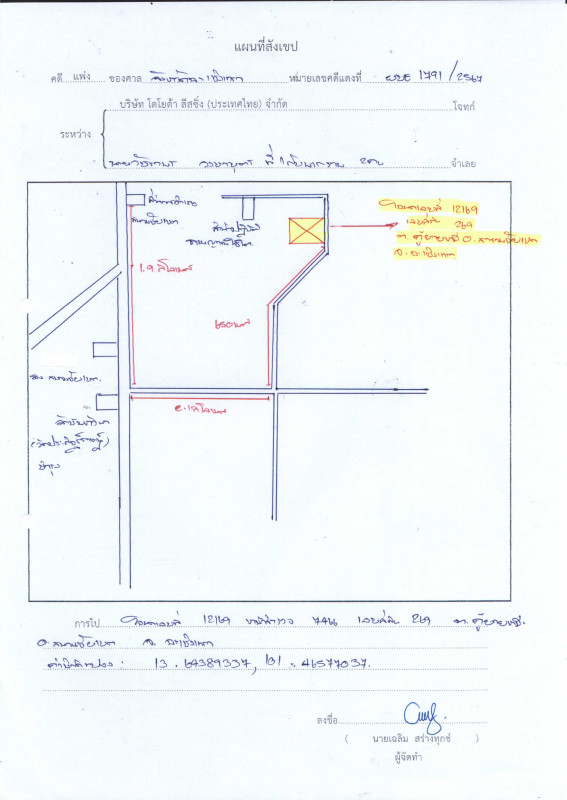 แผนที่สังเขป
คดี แพ่ง ของศาล จังหวัดฉะเชิงเทรา หมายเลขคดีแดงที่ ผบE 1791/2567
บริษัท โตโยต้า ลีสซิ่ง (ประเทศไทย) จำกัด โจทก์
ระหว่าง
ที่ 1 กับพวกรวม 2 คน จำเลย
ที่ว่าการอำเภอ
สนามชัยเขต
1.9 กิโลเมตร
650 เมตร
โฉนดเลขที่ 12169
เลขที่ดิน 269
ต. คู้ยายหมี อ. สนามชัยเขต
จ. ฉะเชิงเทรา
สภ. สนามชัยเขต.
การไป โฉนดเลขที่ 12169 หน้าสำรวจ 7466 เลขที่ดิน 269 ต. คู้ยายหมี.
อ. สนามชัยเขต จ. ฉะเชิงเทรา
ค่าพิกัดแปลง : 13.64389337, 101.46577037.
ลงชื่อ
( นายเฉลิม สร่างทุกข์ )
ผู้จัดทำ